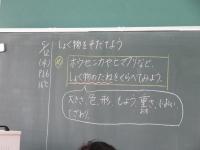 5/12
(木)
P.16
しょく物をそだてよう
め ホウセンカやヒマワリなど、
しょく物のたねをくらべてみよう。
大きさ、色、形、しょう、重さ、におい
おも
てざわり